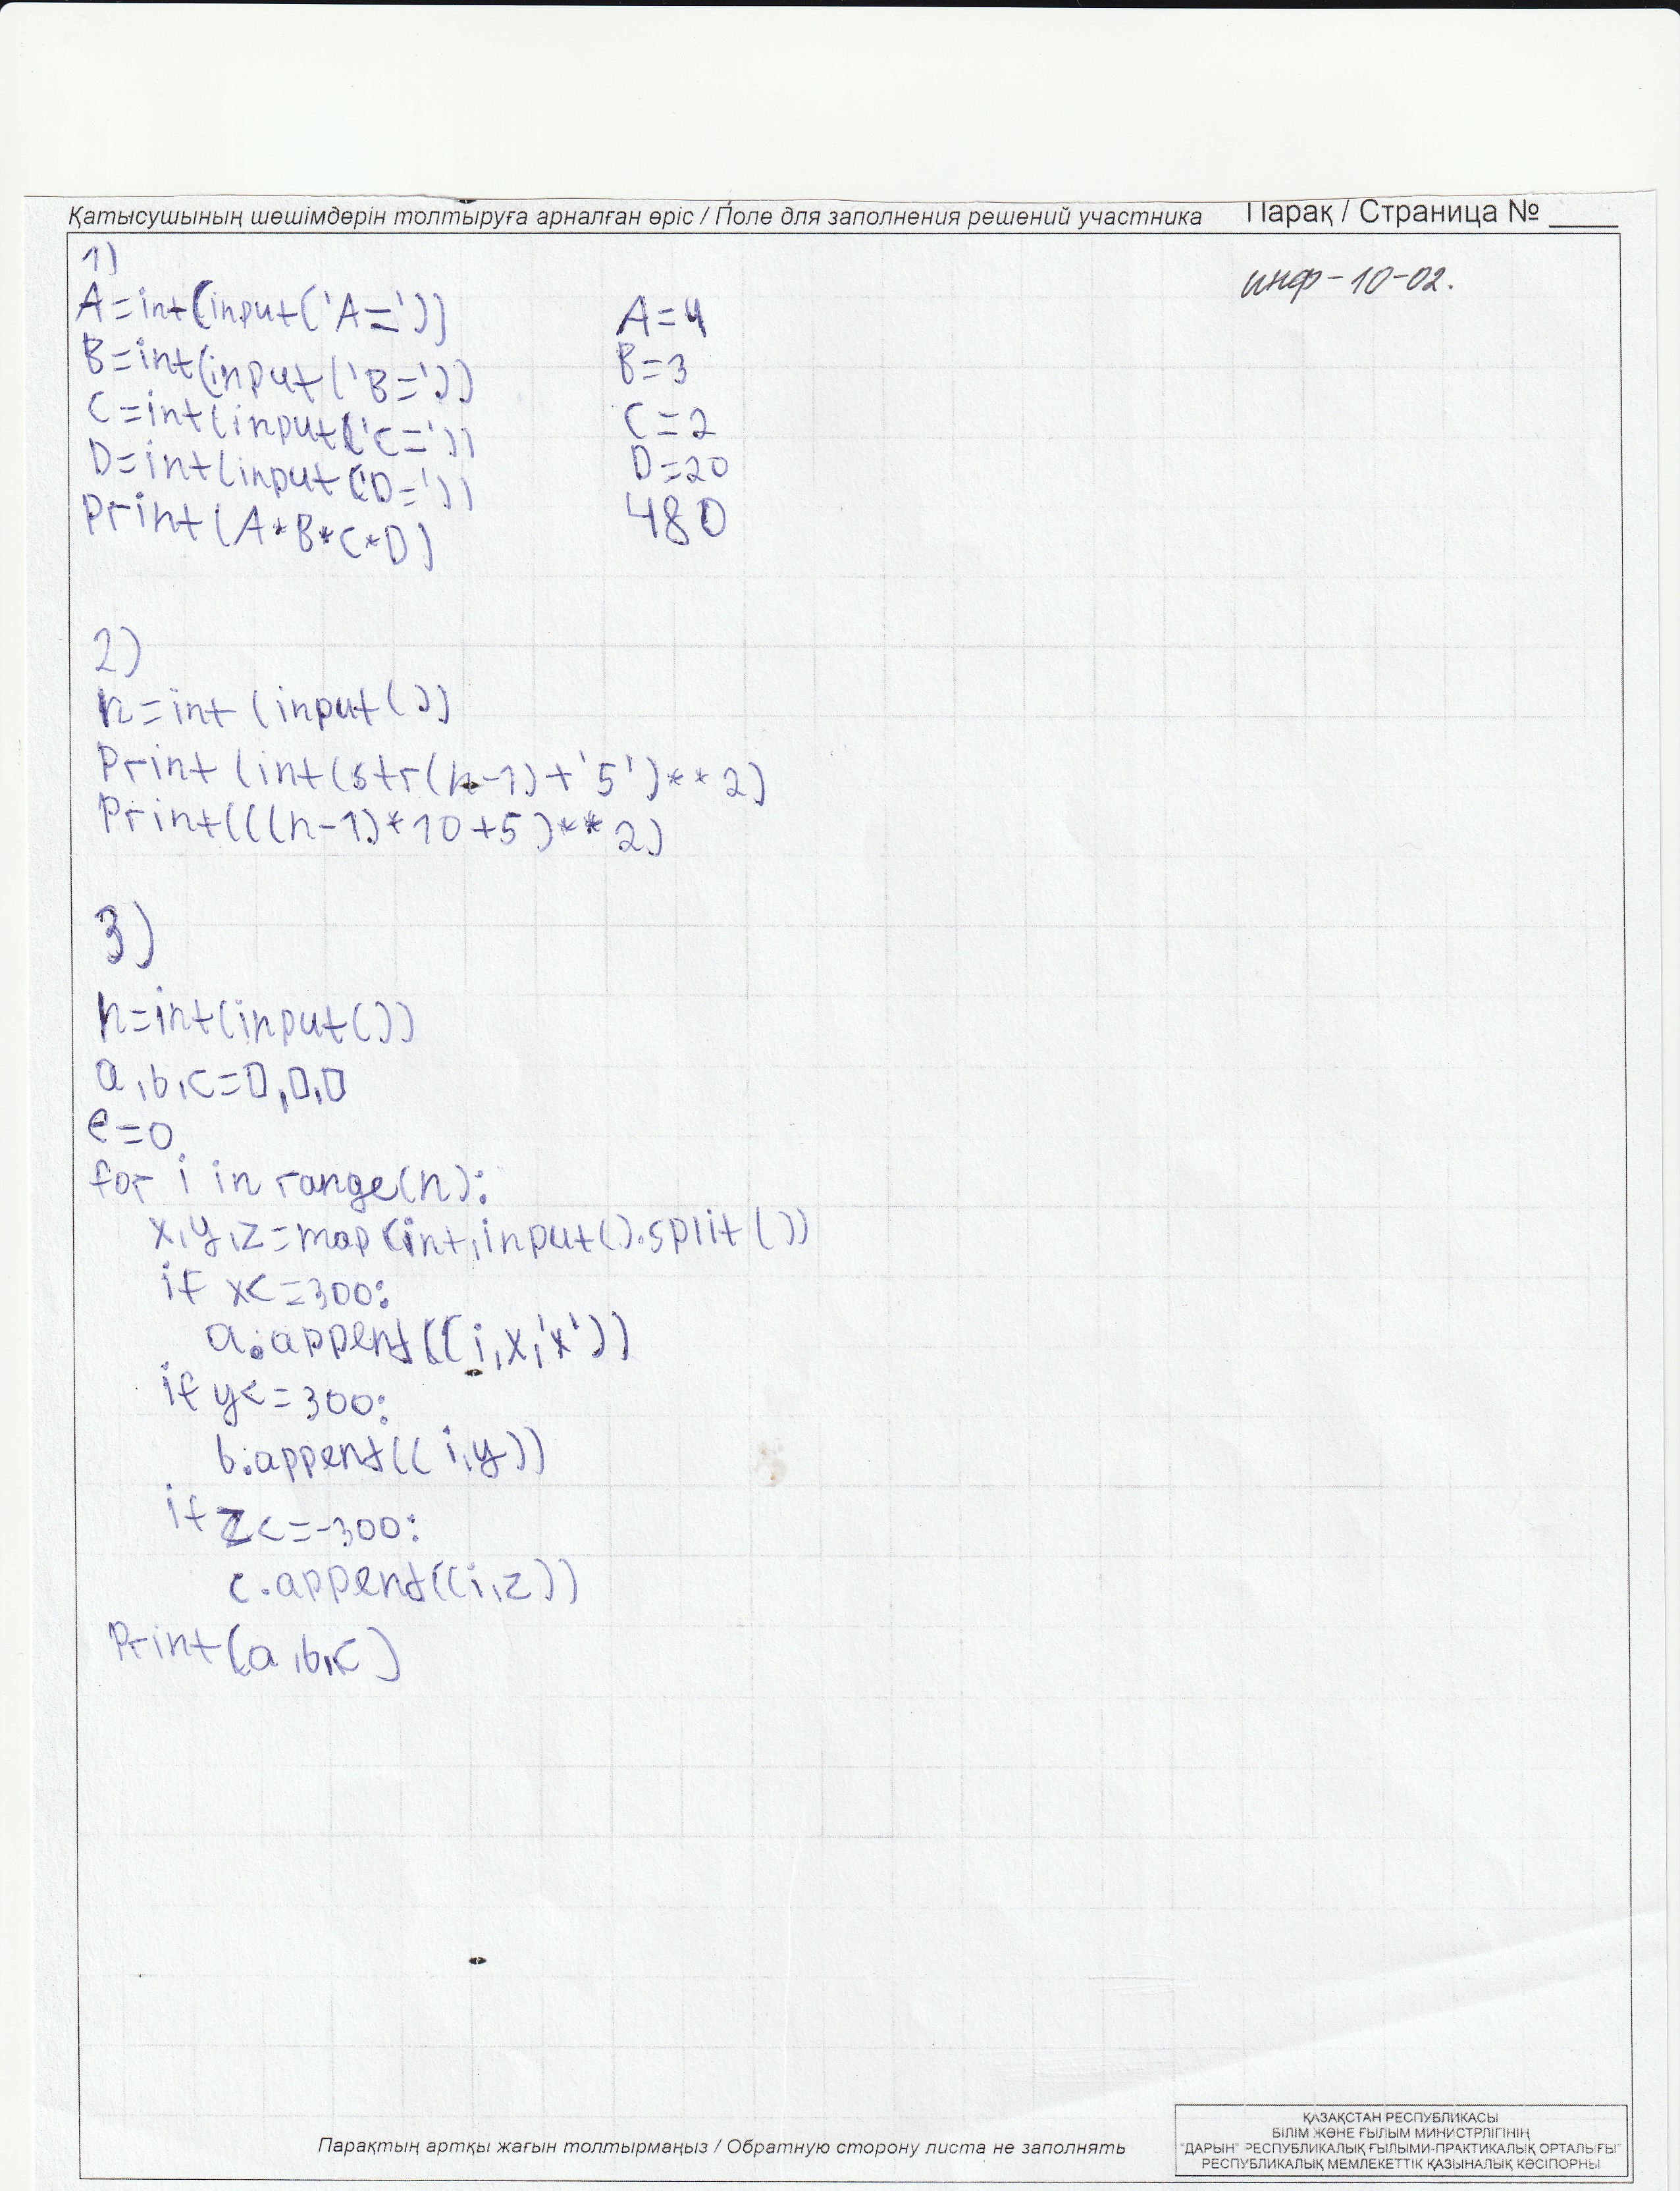 Қатысушының шешімдерін толтыруға арналған өріс / Поле для заполнения решений участника
Парақ / Страница № ____
инф-10-02.
1)
A=int(input('A='))
B=int(input('B='))
C=int(input('C='))
D=int(input('D='))
Print(A*B*C*D)
A=4
B=3
C=2
D=20
480
2)
n=int(input())
Print(int(str(n-1)+'5')**2)
Print(((n-1)*10+5)**2)
3)
n=int(input())
a,b,c=0,0,0
e=0
for i in range(n):
x,y,z=map(int,input().split())
if x<=300:
a.appent((i,x,'x'))
if y<=300:
b.appent((i,y))
if z<=-300:
c.appent((i,z))
Print(a,b,c)
Парақтың артқы жағын толтырмаңыз / Обратную сторону листа не заполнять
ҚАЗАҚСТАН РЕСПУБЛИКАСЫ
БІЛІМ ЖӘНЕ ҒЫЛЫМ МИНИСТРЛІГІНІҢ
"ДАРЫН" РЕСПУБЛИКАЛЫҚ ҒЫЛЫМИ-ПРАКТИКАЛЫҚ ОРТАЛЫҒЫ"
РЕСПУБЛИКАЛЫҚ МЕМЛЕКЕТТІК ҚАЗЫНАЛЫҚ КӘСІПОРНЫ